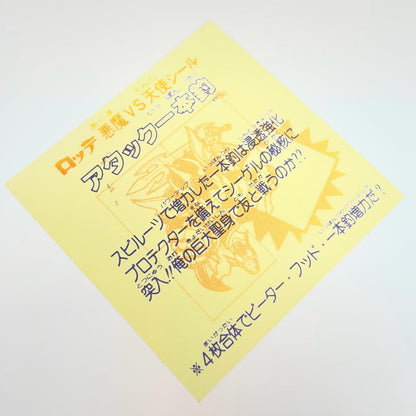 ロッテ 悪魔VS天使シール
アタック一本釣
スピルーツで増力した一本釣は浸透強化
プロテクターを備えてシーゲルの秘核に
突入!!俺の巨大聖身で友と戦うのか?!
※4枚合体でピーター・フッド・一本釣増力だ?